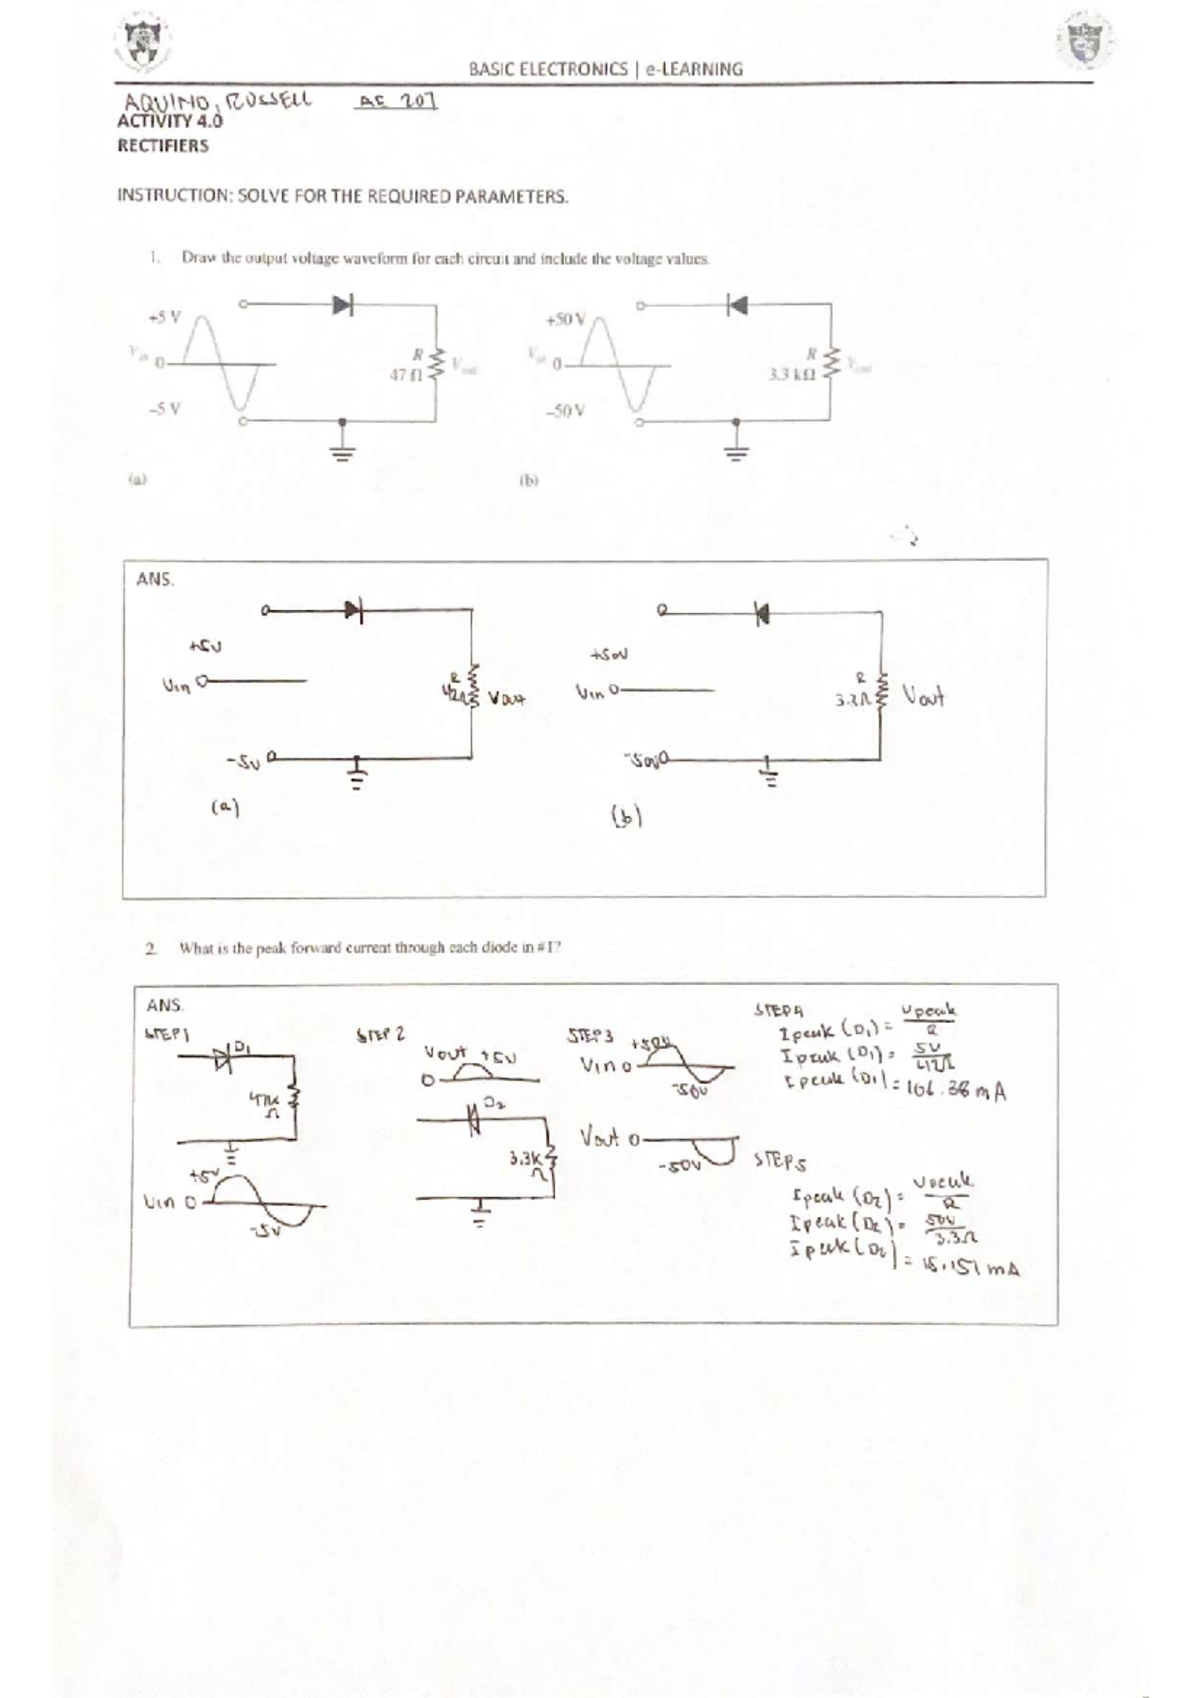 BASIC ELECTRONICS | e-LEARNING
AQUINO, RUSSELL AE 207
ACTIVITY 4.0
RECTIFIERS
INSTRUCTION: SOLVE FOR THE REQUIRED PARAMETERS.
1. Draw the output voltage waveform for each circuit and include the voltage values.
+5 V
Vin 0
-5 V
R
47 Ω
Vout
(a)
+50 V
Vin 0
-50 V
R
3.3 kΩ
Vout
(b)
ANS.
+5V
Vin 0
-5V
R
Vout
(a)
+50V
Vin 0
-50V
R
3.3Ω
Vout
(b)
2. What is the peak forward current through each diode in #1?
ANS.
STEP 1
D1
Ω
+5V
Vin 0
-5V
STEP 2
Vout +5V
0
D2
3.3K
Ω
STEP 3
+50V
Vin 0
-50V
Vout 0
-50V
STEP 4
Ipeak (D1) = Vpeak
R
Ipeak (D1) = 5V
Ipeak (D1) = 106.38 mA
STEP 5
Ipeak (D2) = Vpeak
R
Ipeak (D2) = 50V
3.3Ω
Ipeak (D2) = 15.151 mA